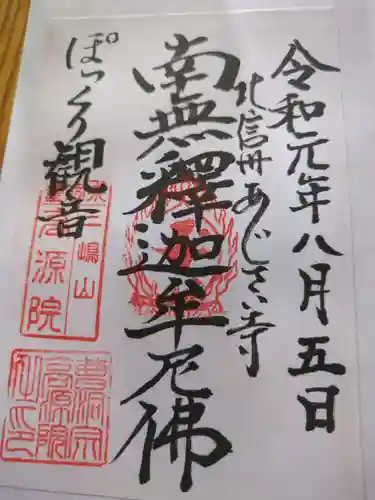 令和元年八月五日
北信州あじさい寺
南無釋迦牟尼佛
ぽっくり観音
嶋山
源院
曹洞宗
高源院